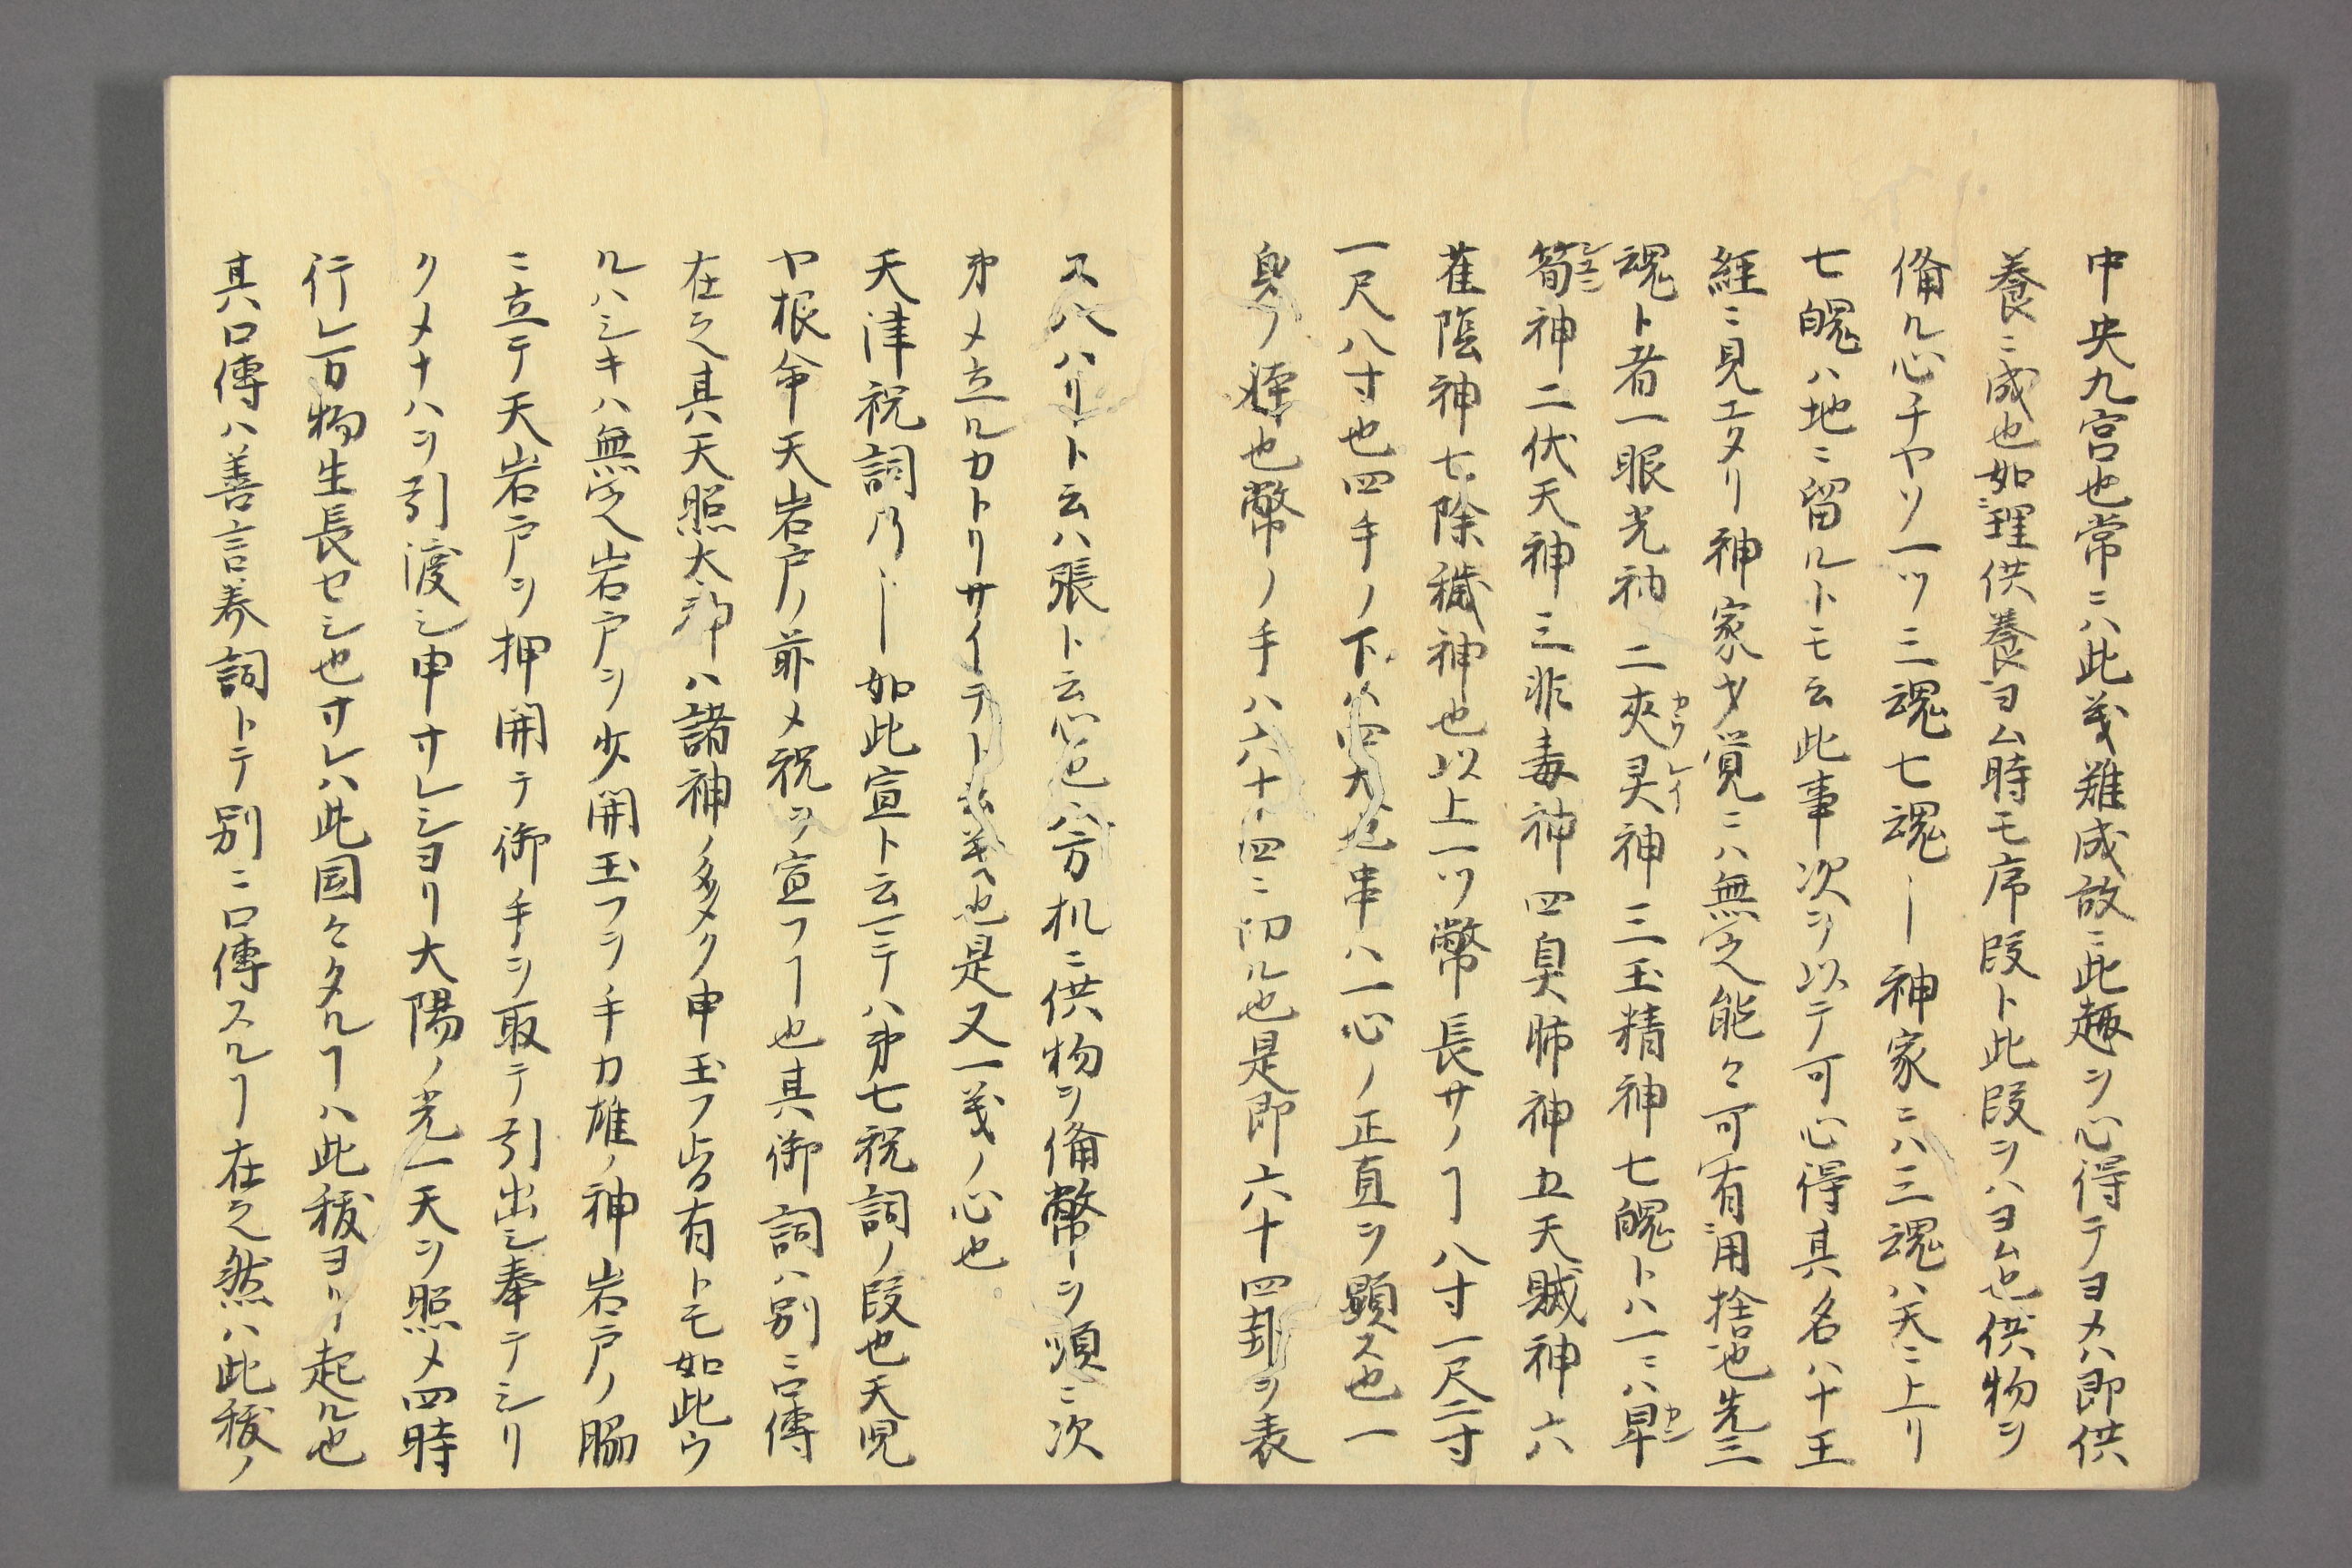 中央九宮也常ニハ此義難成故ニ此趣ヲ心得テヨメハ即供
養ニ成也如理供養ヨム時モ序段ト此段ヲハヨム也供物ヲ
備ル心チヤソ一ツ三魂七魂ー神家ニハ三魂ハ天ニ上リ
七魄ハ地ニ留ルトモ云此事次ヲ以テ可心得其名ハ十王
経ニ見エタリ神家才覚ニハ無之能々可有用捨也先三
魂ト者一眼光神二夾霊神三玉精神七魄トハ一ニハ早
筍神二伏天神三非毒神四臭肺神五天賊神六
雀陰神七除穢神也以上一ツ幣長サノヿ八寸一尺二寸
一尺八寸也四手ノ下ハ四大也串ハ一心ノ正直ヲ顕ス也一
身ノ也幣ノ手ハ六十四ニ切ル也是即六十四卦ヲ表
ス八ハリト云ハ張ト云心也八方机ニ供物ヲ備幣ーヲ順ニ次
第メ立ルカトリサイテト云義也是又一義ノ心也
天津祝詞乃ー如此宣ト云ニテハ第七祝詞ノ段也天児
ヤ根命天岩戸ノ前メ祝ヲ宣フヿ也其御詞ハ別ニ口傳
在之其天照大神ハ諸神ノ多メク申玉フ皆有トモ如此ウ
ルハシキハ無之岩戸ヲ少開玉フヲ手力雄ノ神岩戸ノ脇
ニ立テ天岩戸ヲ押開テ御手ヲ取テ引出シ奉テシリ
クメナハヲ引渡シ申サレシヨリ大陽ノ光一天ヲ照メ四時
行レ百物生長セシ也サレハ此国々タルヿハ此祓ヨリ起ル也
其口傳ハ善言美詞トテ別ニ口傳スルヿ在之然ハ此祓ノ